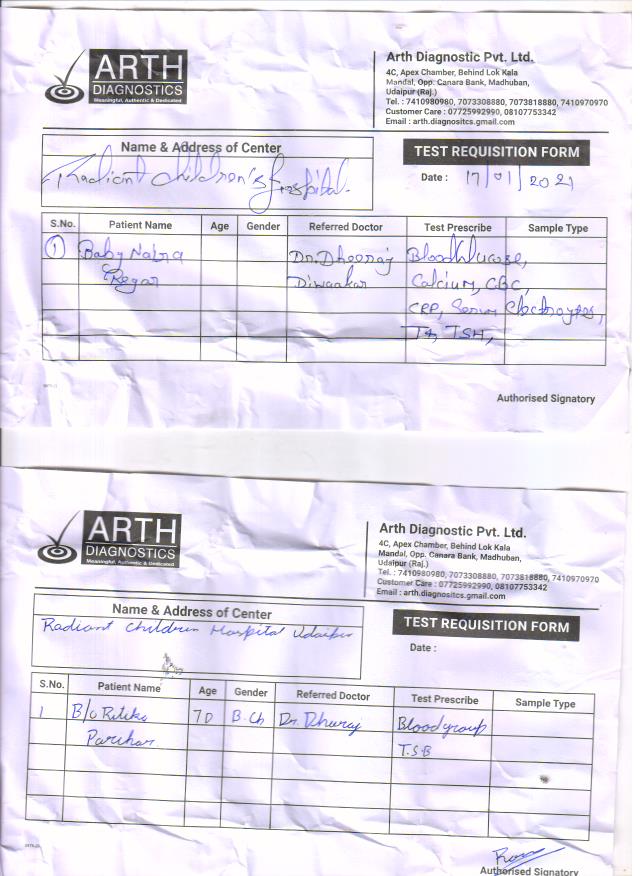 ARTH
DIAGNOSTICS
Meaningful, Authentic & Dedicated
Arth Diagnostic Pvt. Ltd.
4C, Apex Chamber, Behind Lok Kala
Mandal, Opp. Canara Bank, Madhuban,
Udaipur (Raj.)
Tel. : 7410980980, 7073308880, 7073818880, 7410970970
Customer Care : 07725992990, 08107753342
Email : arth.diagnositcs.gmail.com
Name & Address of Center
Radiant Children's Hospital.
TEST REQUISITION FORM
Date : 17/01/2021
S.No. Patient Name Age Gender Referred Doctor Test Prescribe Sample Type
1 Baby Dr. Dheeraj Blood Glucose,
Regar Diwaakar Calcium, CBC,
CRP, Serum Electroytes,
T4, TSH,
Authorised Signatory
ARTH
DIAGNOSTICS
Meaningful, Authentic & Dedicated
Arth Diagnostic Pvt. Ltd.
4C, Apex Chamber, Behind Lok Kala
Mandal, Opp. Canara Bank, Madhuban,
Udaipur (Raj.)
Tel. : 7410980980, 7073308880, 7073818880, 7410970970
Customer Care : 07725992990, 08107753342
Email : arth.diagnositcs.gmail.com
Name & Address of Center
Radiant Children Hospital Udaipur
TEST REQUISITION FORM
Date :
S.No. Patient Name Age Gender Referred Doctor Test Prescribe Sample Type
1 B/o Ritika 7D B.Ch Dr. Dhiraj Blood group
Parihar. T.S.B
Authorised Signatory